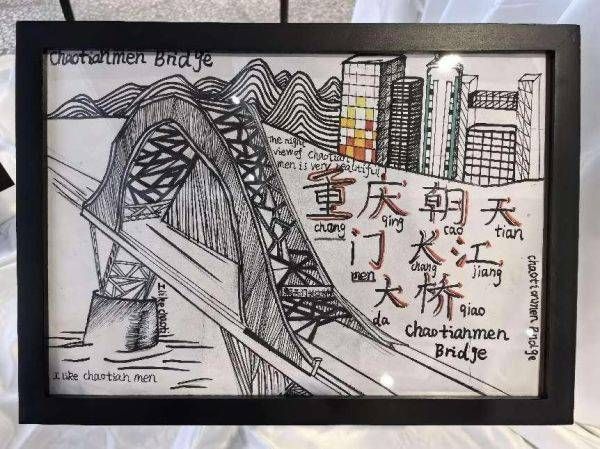 Chaotianmen Bridge
The night
view of Chaotian
men is very beautiful
重庆朝天
chang qing cao tian
门长江
men chang jiang
大桥
da qiao
Chaotianmen
Bridge
chaotianmen Bridge
I like chaotian men